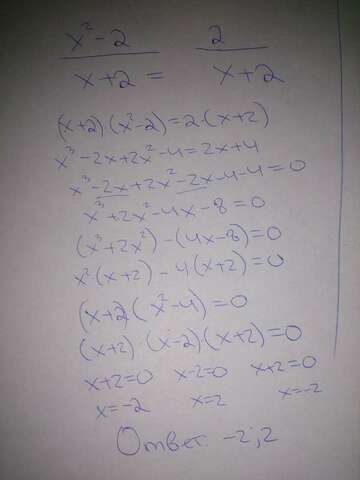 x² - 2 / x + 2 = 2 / x + 2
(x+2)(x²-2)=2(x+2)
x³-2x+2x²-4=2x+4
x³-2x+2x²-2x-4-4=0
x³+2x²-4x-8=0
(x³+2x²)-(4x-8)=0
x²(x+2)-4(x+2)=0
(x+2(x²-4)=0
(x+2)(x-2)(x+2)=0
x+2=0 x-2=0 x+2=0
x=-2 x=2 x=-2
Ответ: -2;2